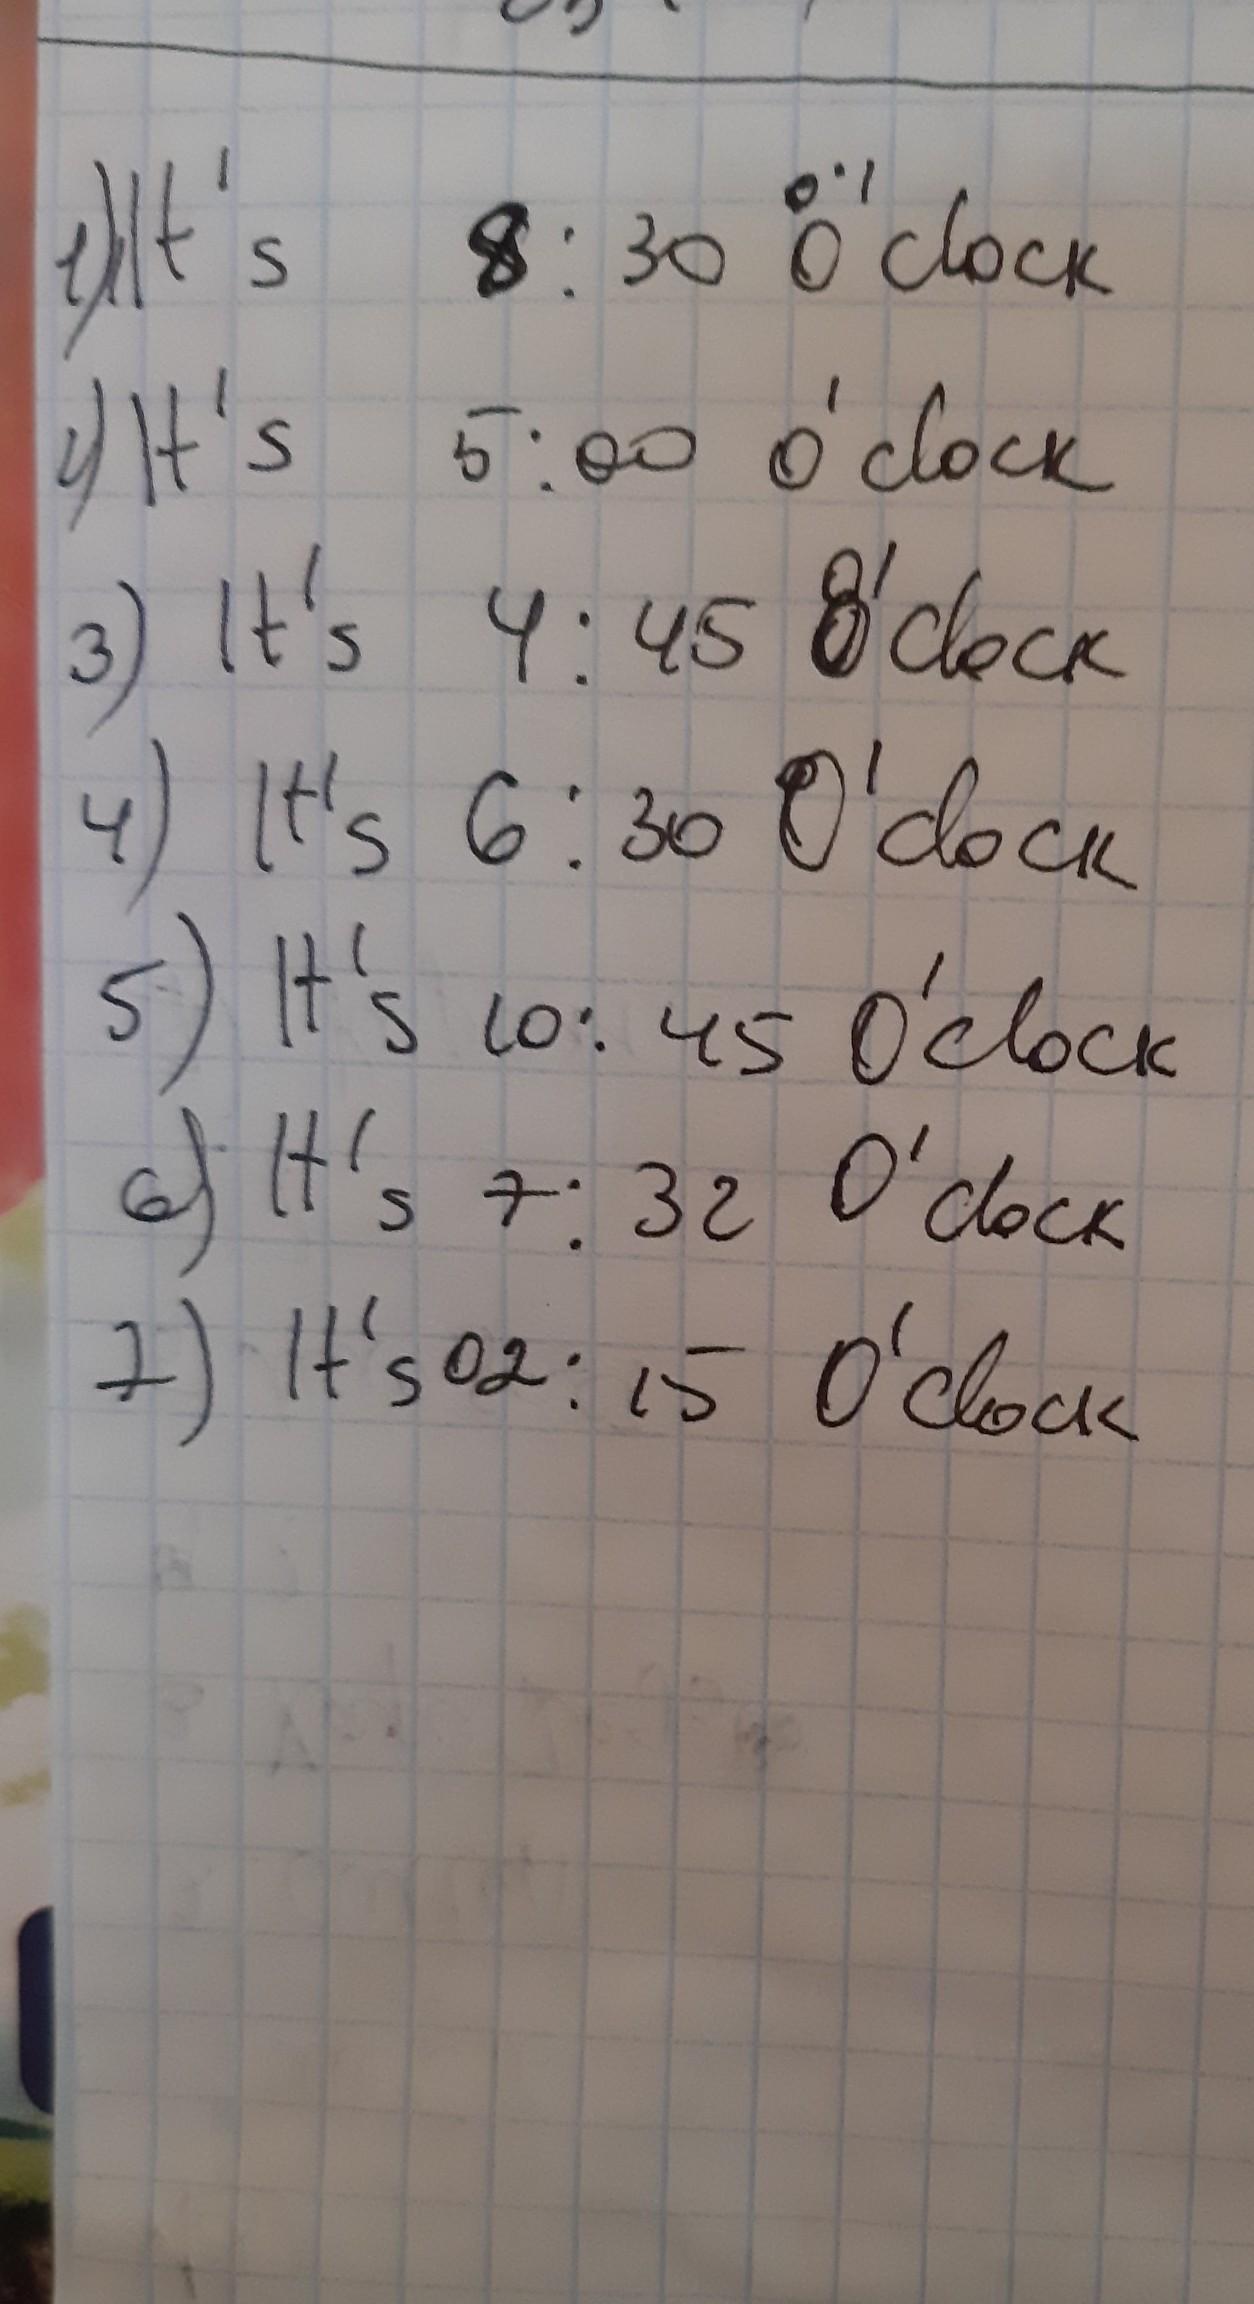 1) It's 8:30 O'clock
2) It's 5:00 O'clock
3) It's 4:45 O'clock
4) It's 6:30 O'clock
5) It's 10:45 O'clock
6) It's 7:32 O'clock
7) It's 02:15 O'clock